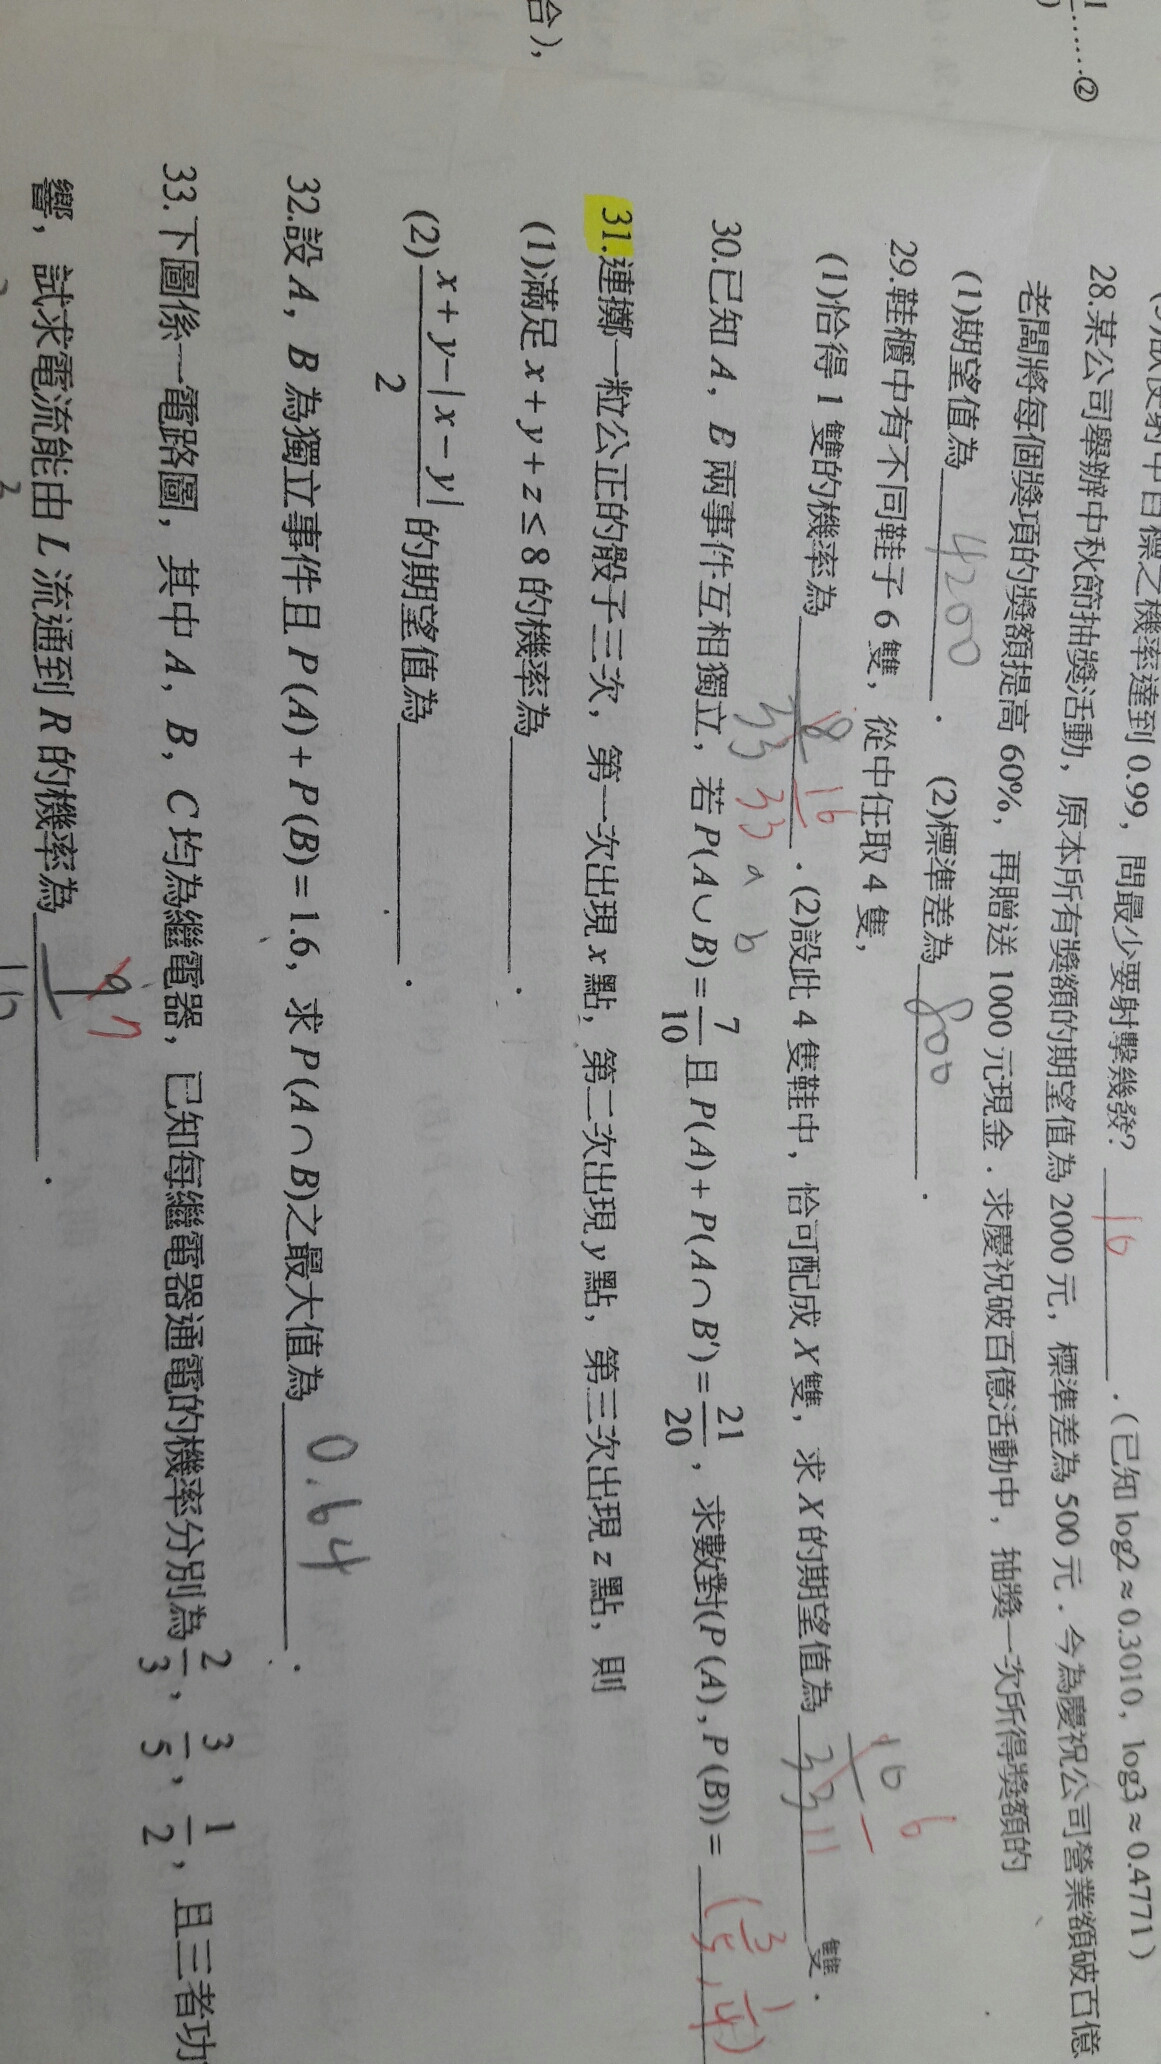 1……②
合），
28.某公司舉辦中秋節抽獎活動，原本所有獎額的期望值為 2000 元，標準差為 500 元．今為慶祝公司營業額破百億
老闆將每個獎項的獎額提高 60%，再贈送 1000 元現金．求慶祝破百億活動中，抽獎一次所得獎額的
(1)期望值為 4200 ． (2)標準差為 800 ．
標之機率達到 0.99，問最少要射擊幾發？ 16 ．(已知 log2≈0.3010，log3≈0.4771)
29.鞋櫃中有不同鞋子 6 雙，從中任取 4 隻，
(1)恰得 1 雙的機率為 16/33 ．(2)設此 4 隻鞋中，恰可配成 X 雙，求 X 的期望值為 6/11 雙．
a b
30.已知 A，B 兩事件互相獨立，若 P(A∪B)=7/10 且 P(A)+P(A∩B')=21/20，求數對(P(A),P(B))= (3/5, 1/4)
31.連擲一粒公正的骰子三次，第一次出現 x 點，第二次出現 y 點，第三次出現 z 點，則
(1)滿足 x+y+z≤8 的機率為 ．
(2) (x+y-|x-y|)/2 的期望值為 ．
32.設 A，B 為獨立事件且 P(A)+P(B)=1.6，求 P(A∩B)之最大值為 0.64 ．
33.下圖係一電路圖，其中 A，B，C 均為繼電器，已知每繼電器通電的機率分別為 2/3，3/5，1/2，且三者功
響，試求電流能由 L 流通到 R 的機率為 ．